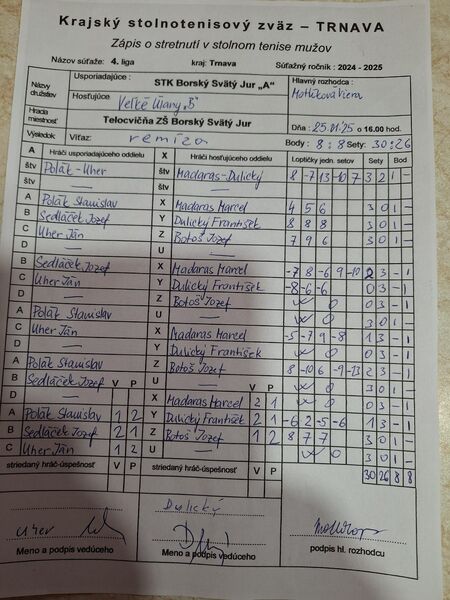 Krajský stolnotenisový zväz – TRNAVA
Zápis o stretnutí v stolnom tenise mužov
Názov súťaže: 4. liga kraj: Trnava Súťažný ročník : 2024 - 2025
Názvy družstiev Usporiadajúce : STK Borský Svätý Jur „A“ Hlavný rozhodca :
Hosťujúce Veľké Úľany „B“
Hracia miestnosť Telocvičňa ZŠ Borský Svätý Jur Dňa : 25.01.25 o 16.00 hod.
Výsledok Víťaz: remíza Body : 8 : 8 Sety: 30:26
A Hráči usporiadajúceho oddielu X Hráči hosťujúceho oddielu Loptičky jedn. setov Sety Bod
štv Polák - Uher štv Madaras - Dulický 8 -7 13 -10 7 3 2 1 -
štv — štv —
A Polák Stanislav X Madaras Marcel 4 5 6 3 0 1 -
B Sedláček Jozef Y Dulický František 8 8 8 3 0 1 -
C Uher Ján Z Botoš Jozef 7 9 6 3 0 1 -
D — U —
B Sedláček Jozef X Madaras Marcel -7 8 -6 9 -10 2 3 - 1
C Uher Ján Y Dulický František -8 -6 -6 0 3 - 1
D — Z Botoš Jozef w 0 0 3 - 1
A Polák Stanislav U — w 0 3 0 1 -
C Uher Ján X Madaras Marcel -5 -7 9 -8 1 3 - 1
D — Y Dulický František w 0 0 3 - 1
A Polák Stanislav Z Botoš Jozef 8 -10 6 -9 -13 2 3 - 1
B Sedláček Jozef V P U — V P w 0 3 0 1 -
D — X Madaras Marcel 2 1 w 0 0 3 - 1
A Polák Stanislav 1 2 Y Dulický František 2 1 -6 2 -5 -6 1 3 - 1
B Sedláček Jozef 2 1 Z Botoš Jozef 1 2 8 7 7 3 0 1 -
C Uher Ján 1 2 U — w 0 3 0 1 -
striedaný hráč-úspešnosť V P striedaný hráč-úspešnosť V P 30 26 8 8
Dulický
Uher
Meno a podpis vedúceho Meno a podpis vedúceho podpis hl. rozhodcu